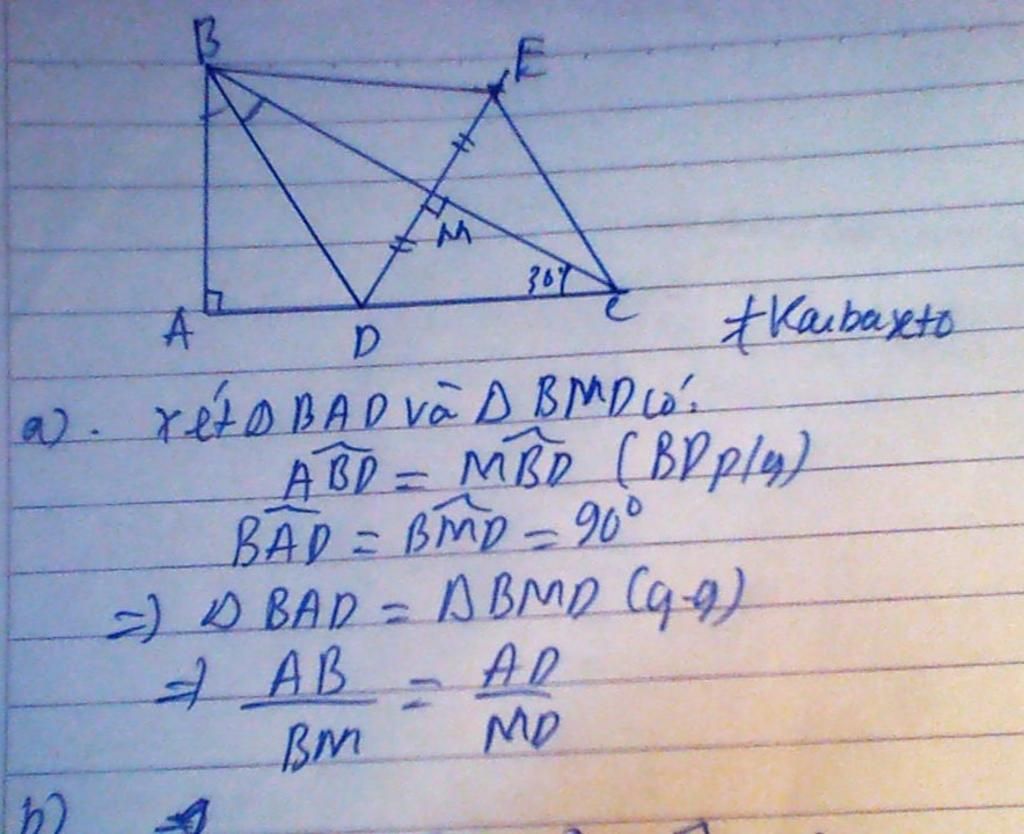 B
E
M
30°
A
D
C
#Kaibaxeto
a). xét Δ BAD và Δ BMD có:
ABD = MBD (BD p/g)
BAD = BMD = 90°
=) Δ BAD = Δ BMD (g-g)
=) AB/BM = AD/MD
b) =)